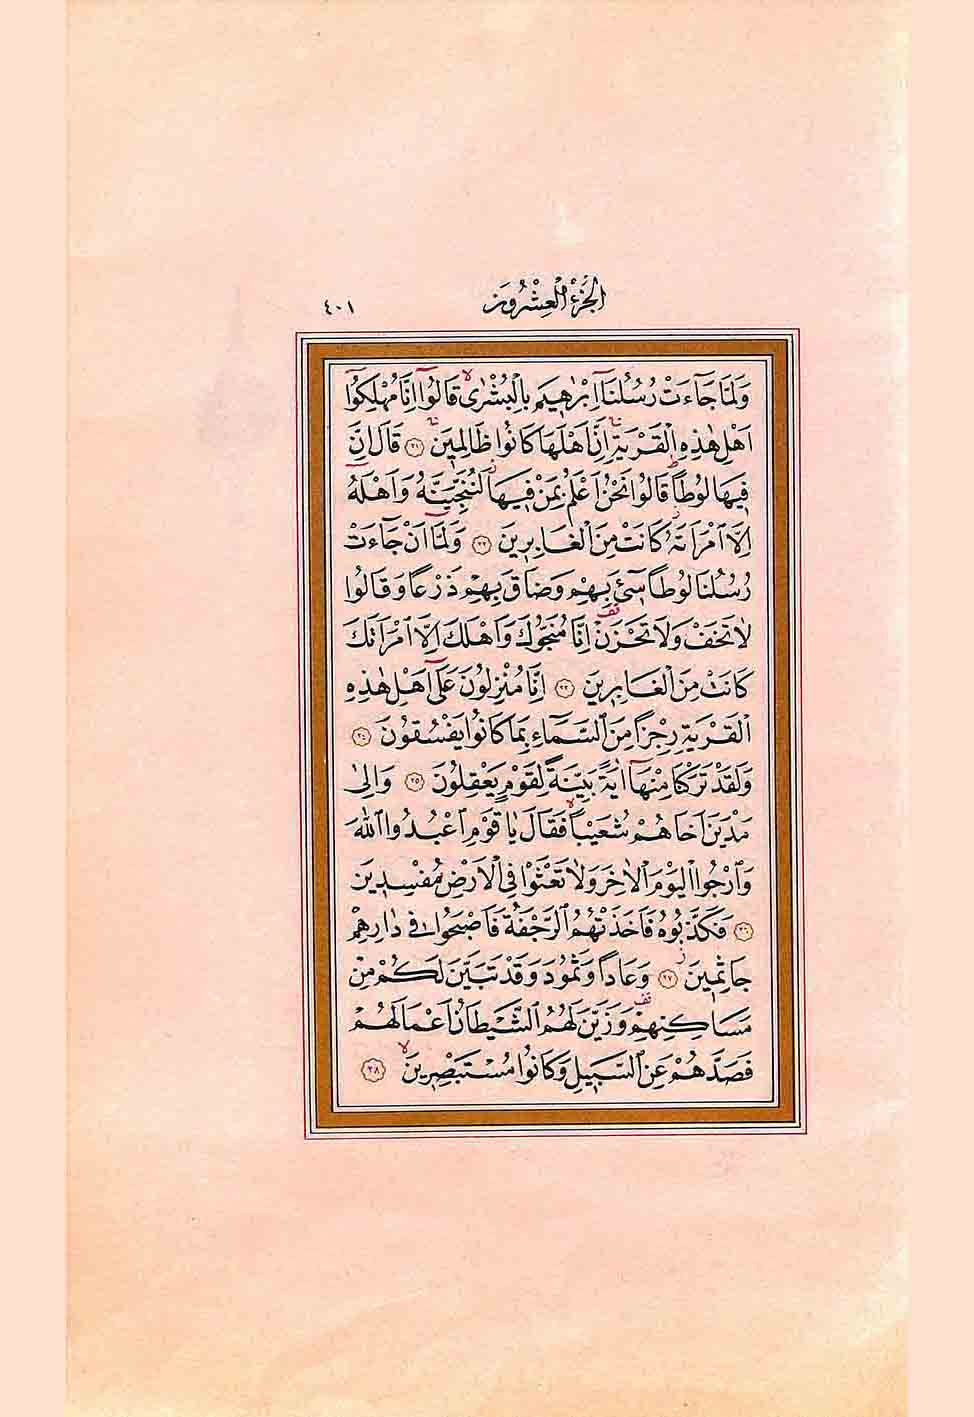 الجزء العشرون
٤٠١
وَلَمَّا جَاءَتْ رُسُلُنَا اِبْرٰهِيمَ بِالْبُشْرٰىۙ قَالُوا اِنَّا مُهْلِكُوا
اَهْلِ هٰذِهِ الْقَرْيَةِۚ اِنَّ اَهْلَهَا كَانُوا ظَالِمِينَۚ ﴿٣١﴾ قَالَ اِنَّ
فِيهَا لُوطًاۜ قَالُوا نَحْنُ اَعْلَمُ بِمَنْ فِيهَاۘ لَنُنَجِّيَنَّهُ وَاَهْلَهُ
اِلَّا امْرَاَتَهُۘ كَانَتْ مِنَ الْغَابِرِينَ ﴿٣٢﴾ وَلَمَّا اَنْ جَاءَتْ
رُسُلُنَا لُوطًا سِيءَ بِهِمْ وَضَاقَ بِهِمْ ذَرْعًا وَقَالُوا
لَا تَخَفْ وَلَا تَحْزَنْ اِنَّا مُنَجُّوكَ وَاَهْلَكَ اِلَّا امْرَاَتَكَ
كَانَتْ مِنَ الْغَابِرِينَ ﴿٣٣﴾ اِنَّا مُنْزِلُونَ عَلٰى اَهْلِ هٰذِهِ
الْقَرْيَةِ رِجْزًا مِنَ السَّمَاءِ بِمَا كَانُوا يَفْسُقُونَ ﴿٣٤﴾
وَلَقَدْ تَرَكْنَا مِنْهَا اٰيَةً بَيِّنَةً لِقَوْمٍ يَعْقِلُونَ ﴿٣٥﴾ وَاِلٰى
مَدْيَنَ اَخَاهُمْ شُعَيْبًاۙ فَقَالَ يَا قَوْمِ اعْبُدُوا اللّٰهَ
وَارْجُوا الْيَوْمَ الْاٰخِرَ وَلَا تَعْثَوْا فِي الْاَرْضِ مُفْسِدِينَ
﴿٣٦﴾ فَكَذَّبُوهُ فَاَخَذَتْهُمُ الرَّجْفَةُ فَاَصْبَحُوا فِي دَارِهِمْ
جَاثِمِينَۘ ﴿٣٧﴾ وَعَادًا وَثَمُودَ وَقَدْ تَبَيَّنَ لَكُمْ مِنْ
مَسَاكِنِهِمْ وَزَيَّنَ لَهُمُ الشَّيْطَانُ اَعْمَالَهُمْ
فَصَدَّهُمْ عَنِ السَّبِيلِ وَكَانُوا مُسْتَبْصِرِينَۙ ﴿٣٨﴾